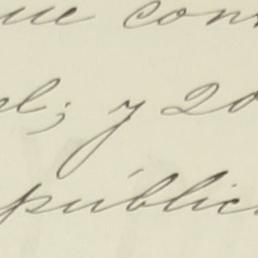 ue con
el; y 20
públic